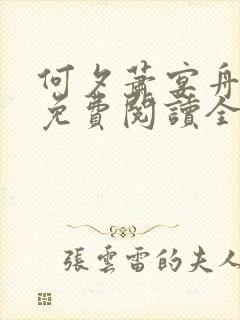 何夕蕭宴舟
免費閱讀全
張雲雷的夫人